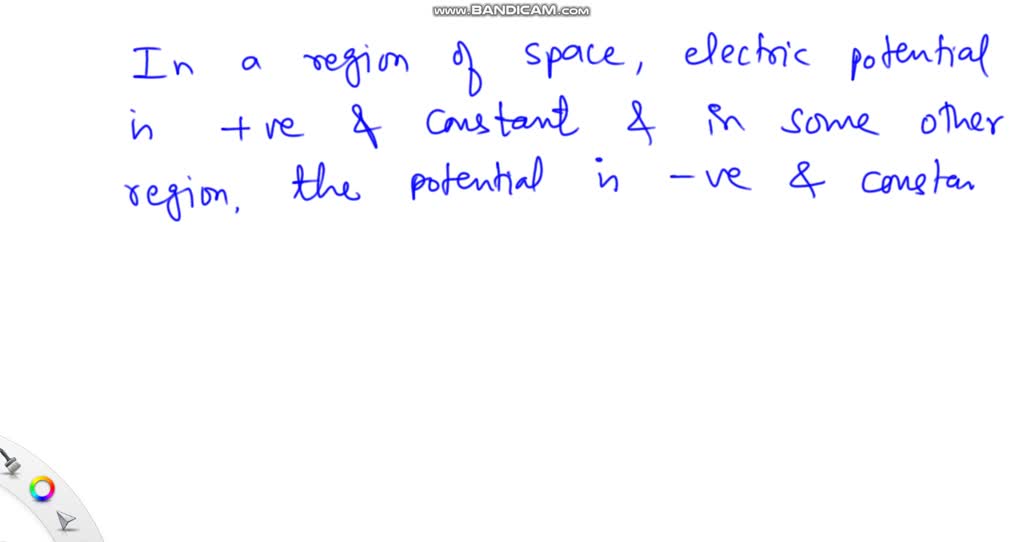 www.BANDICAM.com
In a region of space, electric potential
is +ve & constant & in some other
region, the potential is -ve & constan